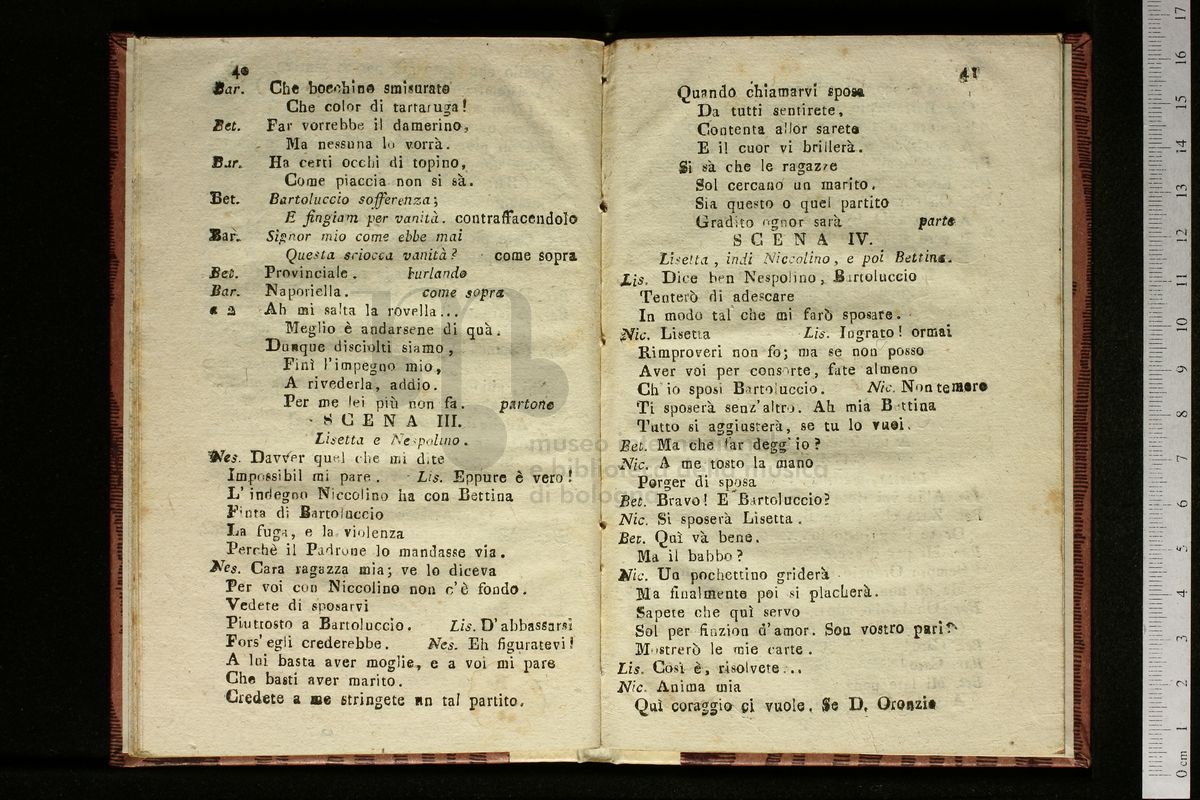 40
Bar. Che bocchino smisurato
Che color di tartaruga!
Bet. Far vorrebbe il damerino,
Ma nessuna lo vorrà.
Bar. Ha certi occhi di topino,
Come piaccia non si sà.
Bet. Bartoluccio sofferenza;
E fingiam per vanità. contraffacendolo
Bar. Signor mio come ebbe mai
Questa sciocca vanità? come sopra
Bet. Provinciale. burlando
Bar. Naporiella. come sopra
a 2 Ah mi salta la rovella...
Meglio è andarsene di quà.
Dunque disciolti siamo,
Finì l'impegno mio,
A rivederla, addio.
Per me lei più non fa. partono
SCENA III.
Lisetta e Nespolino.
Nes. Davver quel che mi dite
Impossibil mi pare. Lis. Eppure è vero!
L' indegno Niccolino ha con Bettina
Finta di Bartoluccio
La fuga, e la violenza
Perchè il Padrone lo mandasse via.
Nes. Cara ragazza mia; ve lo diceva
Per voi con Niccolino non c'è fondo.
Vedete di sposarvi
Piuttosto a Bartoluccio. Lis. D'abbassarsi
Fors' egli crederebbe. Nes. Eh figuratevi!
A lui basta aver moglie, e a voi mi pare
Che basti aver marito.
Credete a me stringete un tal partito.
41
Quando chiamarvi sposa
Da tutti sentirete,
Contenta allor sarete
E il cuor vi brillerà.
Si sà che le ragazze
Sol cercano un marito.
Sia questo o quel partito
Gradito ognor sarà parte
SCENA IV.
Lisetta, indi Niccolino, e poi Bettina.
Lis. Dice ben Nespolino, Bartoluccio
Tenterò di adescare
In modo tal che mi farò sposare.
Nic. Lisetta Lis. Ingrato! ormai
Rimproveri non fo; ma se non posso
Aver voi per consorte, fate almeno
Ch' io sposi Bartoluccio. Nic. Non temere
Ti sposerà senz'altro. Ah mia Bettina
Tutto si aggiusterà, se tu lo vuoi.
Bet. Ma che far degg' io?
Nic. A me tosto la mano
Porger di sposa
Bet. Bravo! E Bartoluccio?
Nic. Si sposerà Lisetta.
Bet. Quì và bene.
Ma il babbo?
Nic. Un pochettino griderà
Ma finalmente poi si placherà.
Sapete che quì servo
Sol per finzion d'amor. Son vostro pari
Mostrerò le mie carte.
Lis. Così è, risolvete...
Nic. Anima mia
Quì coraggio ci vuole. Se D. Oronzio